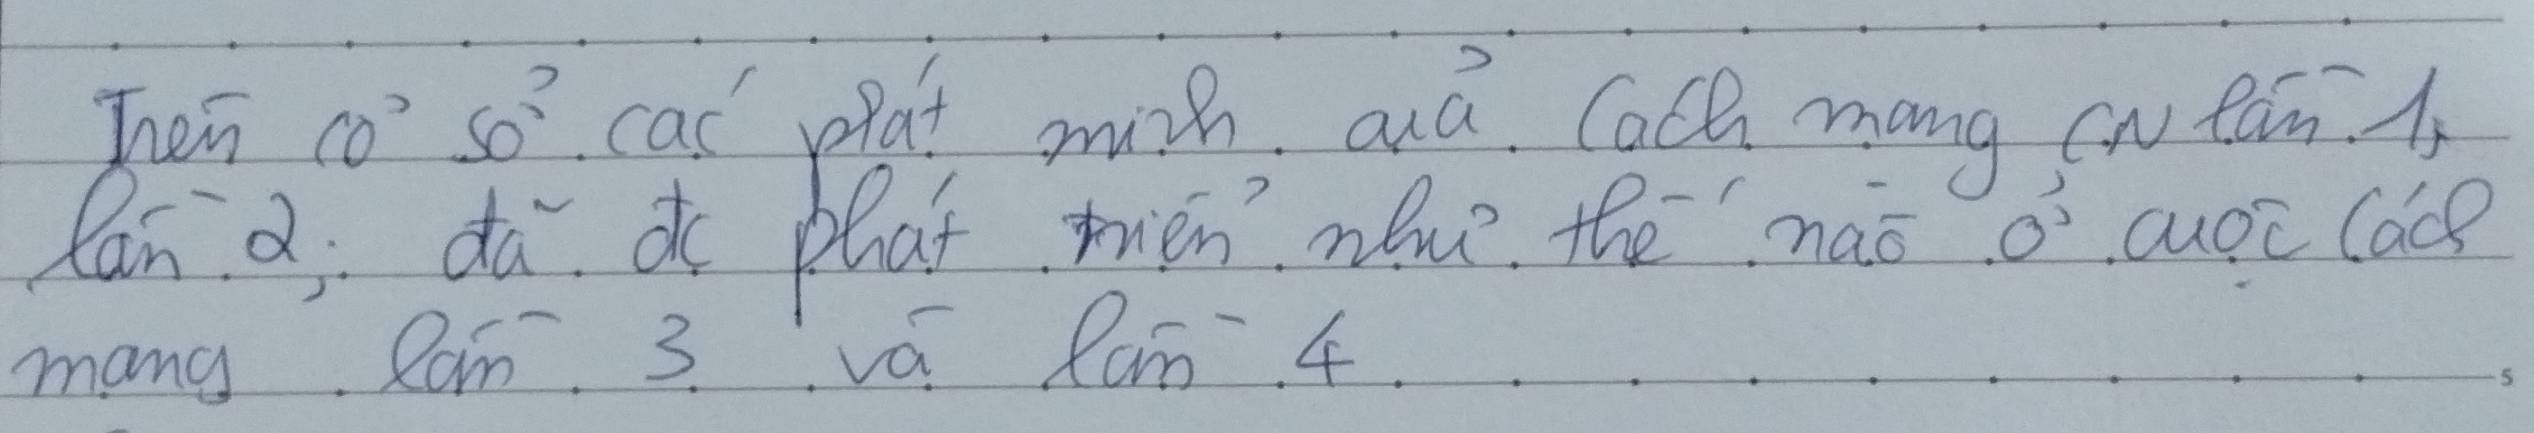 Trên cơ sở các phát minh quả Cách mạng CN lần 1,
lần 2, đã đc phát triển như thế nào ở cuộc Cách
mạng lần 3 và lần 4
5